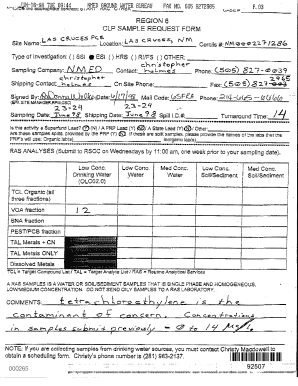 JUN-04-98 04:44 NMED GROUND WATER BUREAU FAX NO. 505 8272965 P.03
REGION 6
CLP SAMPLE REQUEST FORM
Site Name: LAS CRUCES PCE LAS CRUCES, NM Cerclis #: NM0002271286
Type of Investigation: ( ) SSI ESI ( ) HRS ( ) RI/FS ( ) Other:
Sampling Company: NMED Contact: christopher holmes Phone:
Shipping Contact: christopher holmes On Site Phone: Fax: (505) 827- 2965
Signed By: Mail Code: 6SF Phone: 214-665-
(EPA SITE MANAGER/PRO/OSC)
Sampling Date: 23-24 June 98 Shipping Date: 23-24 June 98 Spill I.D.# Turnaround Time: 14
Is the activity a Superfund Lead? (N) / A PRP Lead (Y) / A State Lead (Y) Other:
RAS ANALYSES (Submit to RSCC on Wednesdays by 11:00 am, one week prior to your sampling date).
Low Conc. Drinking Water (OLC02.0) Low Conc. Water Med Conc. Water Low Conc. Soil/Sediment Med Conc. Soil/Sediment
TCL Organic (all three fractions)
VOA fraction 12
BNA fraction
PEST/PCB fraction
TAL Metals + CN
TAL Metals ONLY
Dissolved Metals
TCL = Target Compound List / TAL = Target Analyte List / RAS = Routine Analytical Services
A RAS SAMPLES IS A WATER OR SOIL/SEDIMENT SAMPLES THAT IS SINGLE PHASE AND HOMOGENEOUS,
LOW/MEDIUM CONCENTRATION. DO NOT SEND ANY OTHER TYPE OF SAMPLES TO A RAS LABORATORY.
COMMENTS: tetrachloroethylene is the
contaminant of concern. Concentrations
in samples submitted previously - 0 to 14
NOTE: If you are collecting samples from drinking water sources, you must contact Christy Macdowell to
obtain a scheduling form. Christy's phone number is (281) 983-2137.
000265 92507